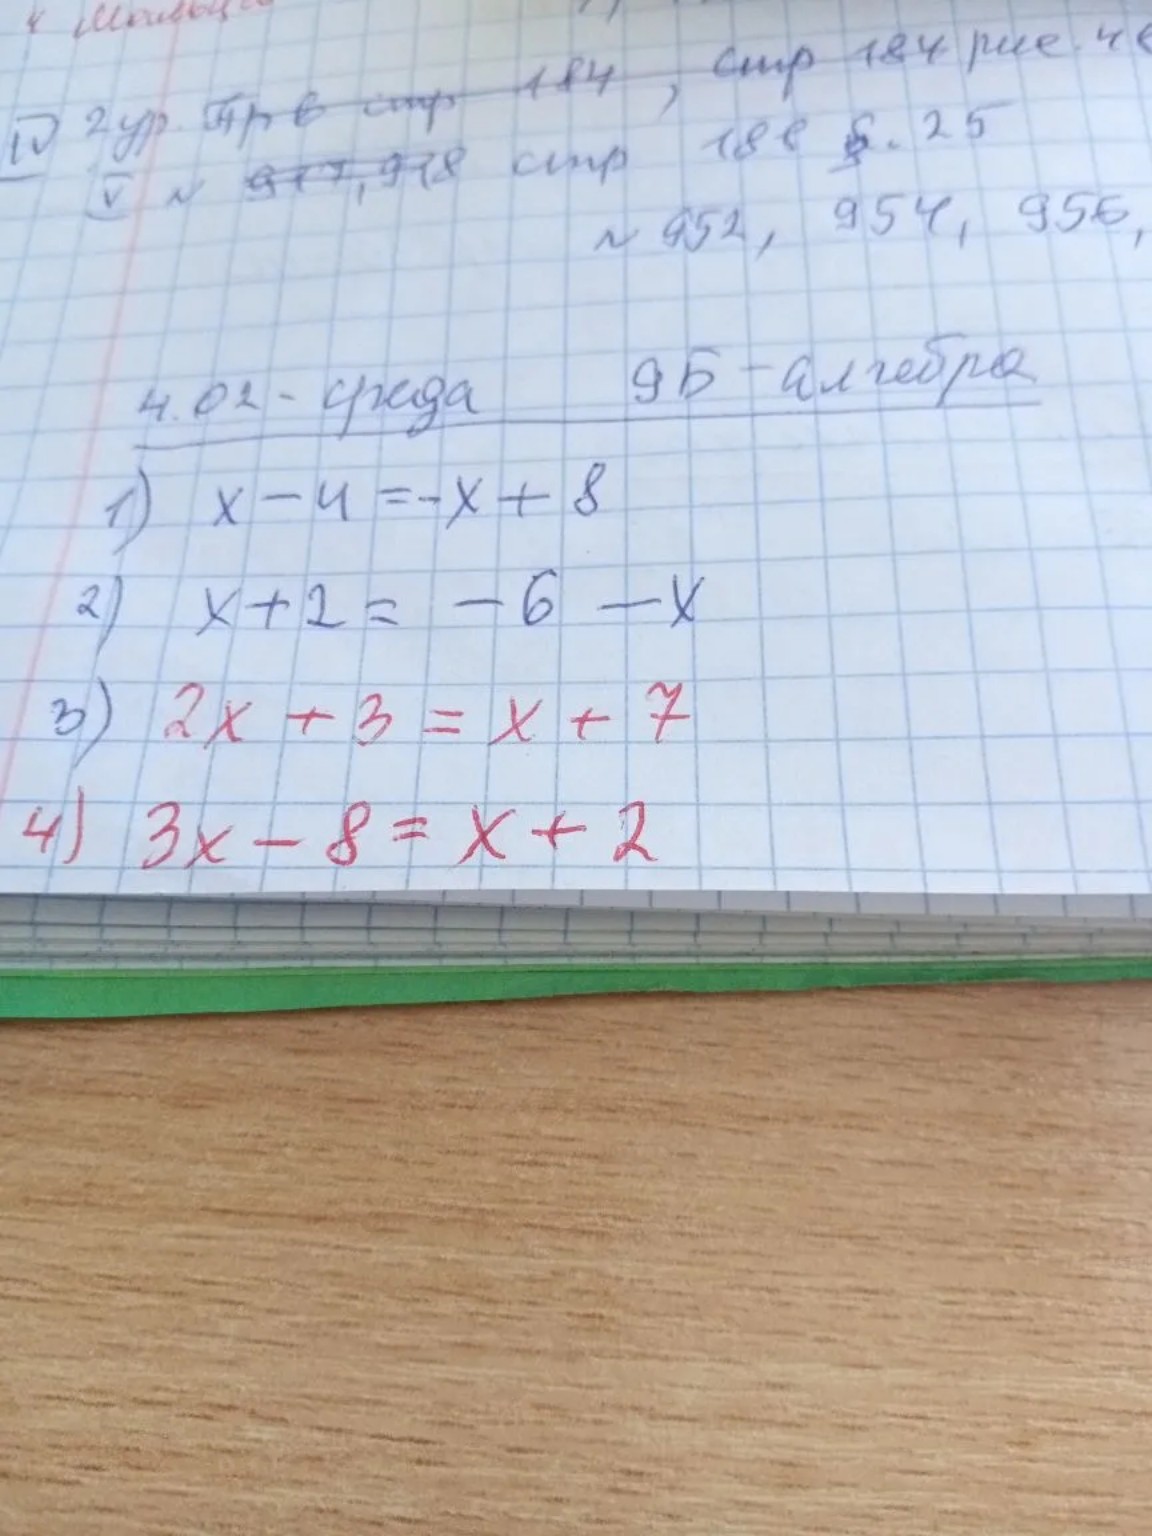 IV 2 ур. Пр в стр 184, стр 184 рис. 4
V N 977, 978 стр 188 §. 25
N 952, 954, 956,
4.02 - среда 9Б - алгебра
1) x - 4 = -x + 8
2) x + 2 = - 6 - x
3) 2x + 3 = x + 7
4) 3x - 8 = x + 2